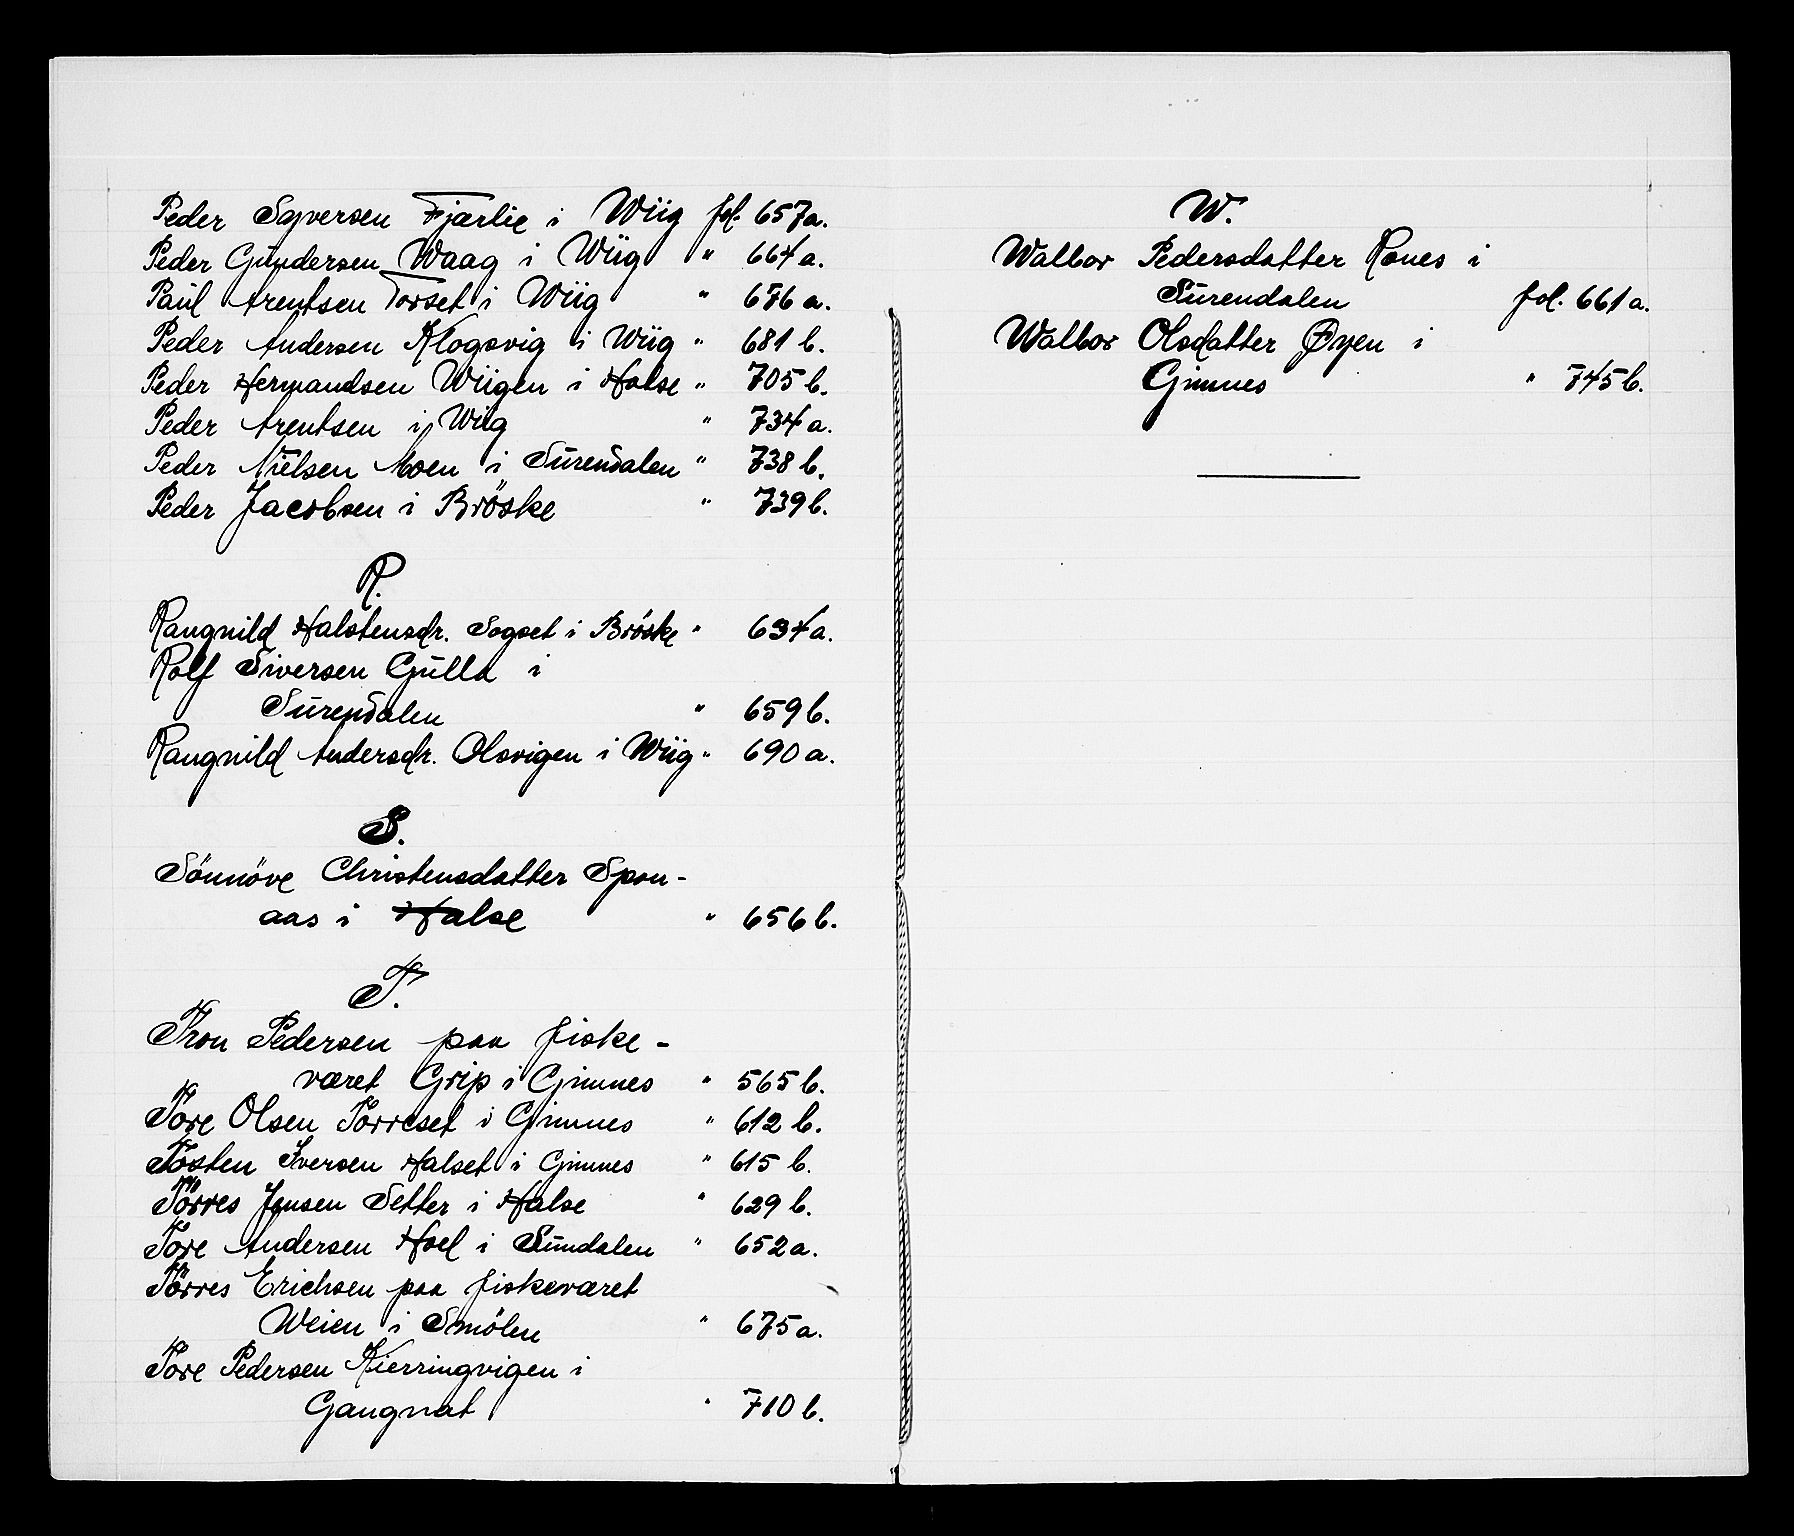 Peder Syversen Fjærlie i Wiig fol. 657a.
Peder Gundersen Waag i Wiig " 664a.
Paul Arentsen Torset i Wiig " 676a.
Peder Andersen Klogsvig i Wiig " 681 b.
Peder Hermandsen Wiigen i Halse " 705 b.
Peder Arentsen i Wiig " 734a.
Peder Nielsen Moen i Surendalen " 738 b.
Peder Jacobsen i Bröske " 739b.
R.
Rangnild Halstensdr. Sogset i Bröske " 634a.
Rolf Siversen Gulla i
Surendalen " 659b.
Rangnild Andersdr. Olsvigen i Wiig " 690a.
S.
Sönnöve Christensdatter Spon-
aas i Halse " 656b.
T.
Tron Pedersen paa fiske-
været Grip i Gimnes " 565b.
Tore Olsen Torreset i Gimnes " 612 b.
Tosten Iversen Halset i Gimnes " 615 b.
Törres Jensen Setter i Halse " 629 b.
Tore Andersen Hoel i Sundalen " 652a.
Törres Erichsen paa fiskeværet
Weien i Smölen " 675a.
Tore Pedersen Kierringvigen i
Gangnat " 710b.
W.
Walbor Pedersdatter Rones i
Surendalen fol. 661a.
Walbor Olsdatter Øyen i
Gimnes " 745b.